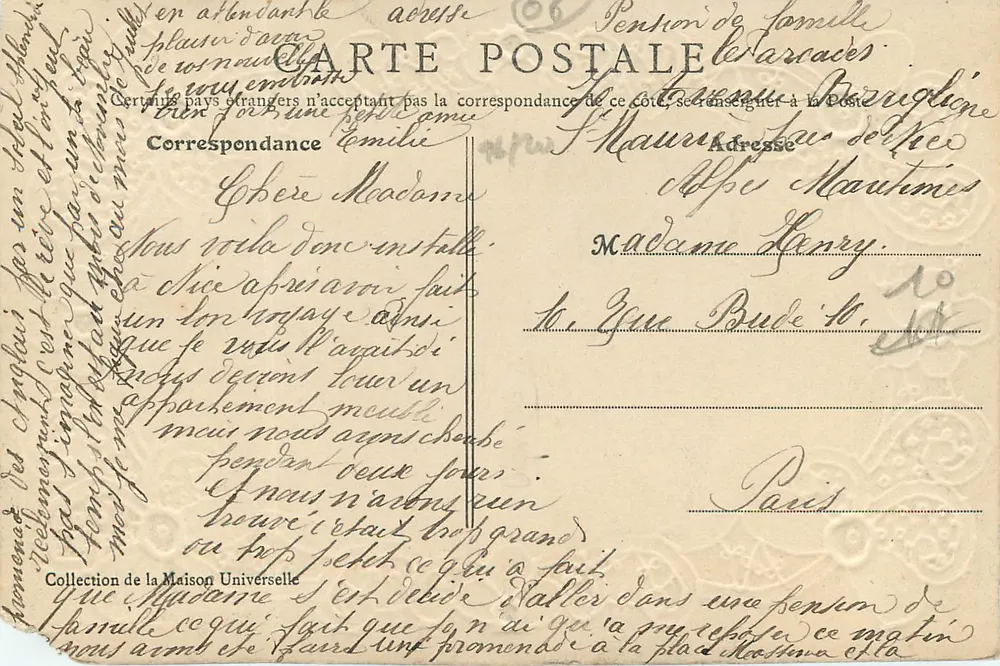 CARTE POSTALE
Certains pays étrangers n'acceptent pas la correspondance de ce côté, se renseigner à la Poste
Correspondance
Adresse
Chère Madame
Nous voila donc installé
à Nice après avoir fait
un bon voyage ainsi
que je vous l'avait di
nous devions louer un
appartement meublé
mais nous avons cherché
pendant deux jours
et nous n'avons rien
trouvé c'était trop grand
ou trop petit ce qui a fait
que Madame s'est décidé d'aller dans une pension de
famille ce qui fait que je n'ai qu'a me reposer ce matin
nous avons été faire une promenade à la place Massena et la
promenade des Anglais par un soleil splendi
c'est le rêve et l'on ne peut
pas s'imaginer que par un beau
temps l'on est au mois de
moi je me au mois de
en attendant le
plaisir d'avoir
de vos nouvelles
je vous embrasse
bien fort une petite amie
Emilie
adresse
Pension de famille
les arcades
Avenue
St Maurice
Alpes Maritimes
Madame Henry.
10. Rue Budé 10.
Paris
06
10
Collection de la Maison Universelle